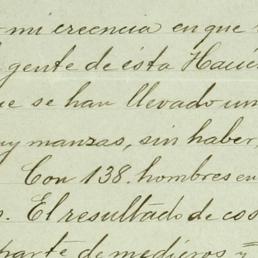 mi creencia en que
gente de ésta Haci
se han llevado un
manzas, sin haber,
Con 138. hombres en
El resultado de cos
parte de medieros y